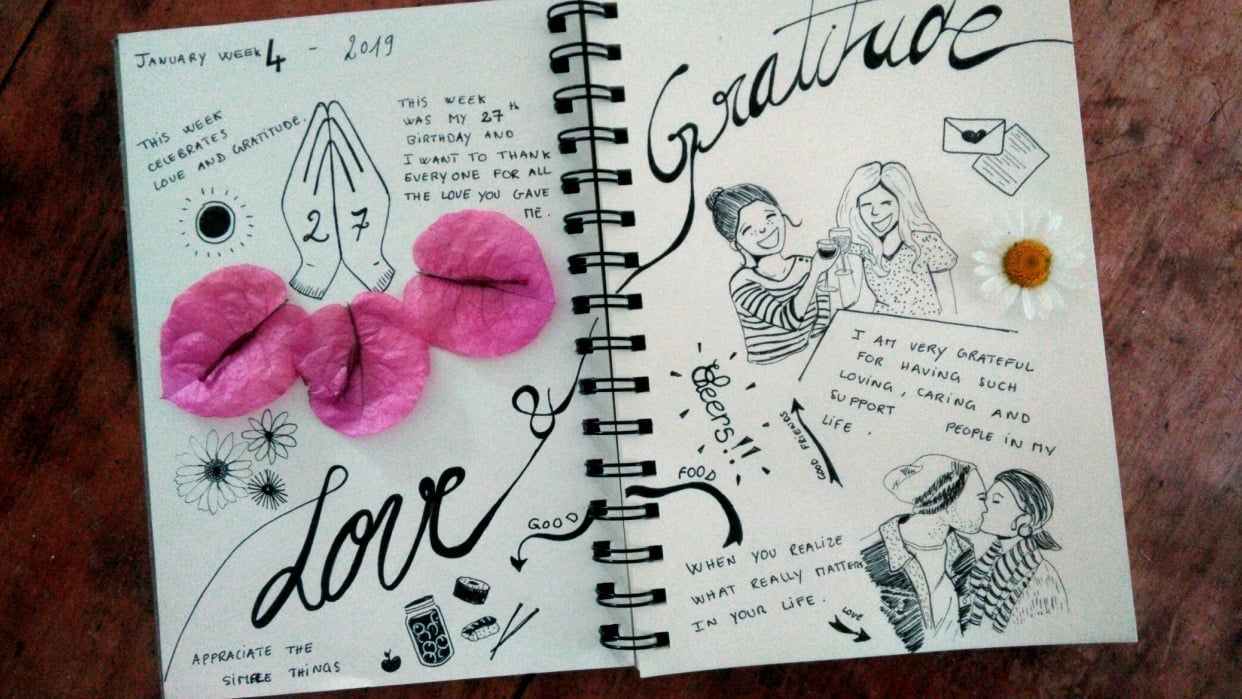 JANUARY WEEK 4 - 2019
THIS WEEK
CELEBRATES
LOVE AND GRATITUDE.
27
THIS WEEK
WAS MY 27th
BIRTHDAY AND
I WANT TO THANK
EVERYONE FOR ALL
THE LOVE YOU GAVE
ME.
&
Love
GOOD
APPRACIATE THE
SIMPLE THINGS
Gratitude
I AM VERY GRATEFUL
FOR HAVING SUCH
LOVING, CARING AND
SUPPORT PEOPLE IN MY
LIFE.
Cheers!!
GOOD FRIENDS
FOOD
WHEN YOU REALIZE
WHAT REALLY MATTERS
IN YOUR LIFE.
LOVE